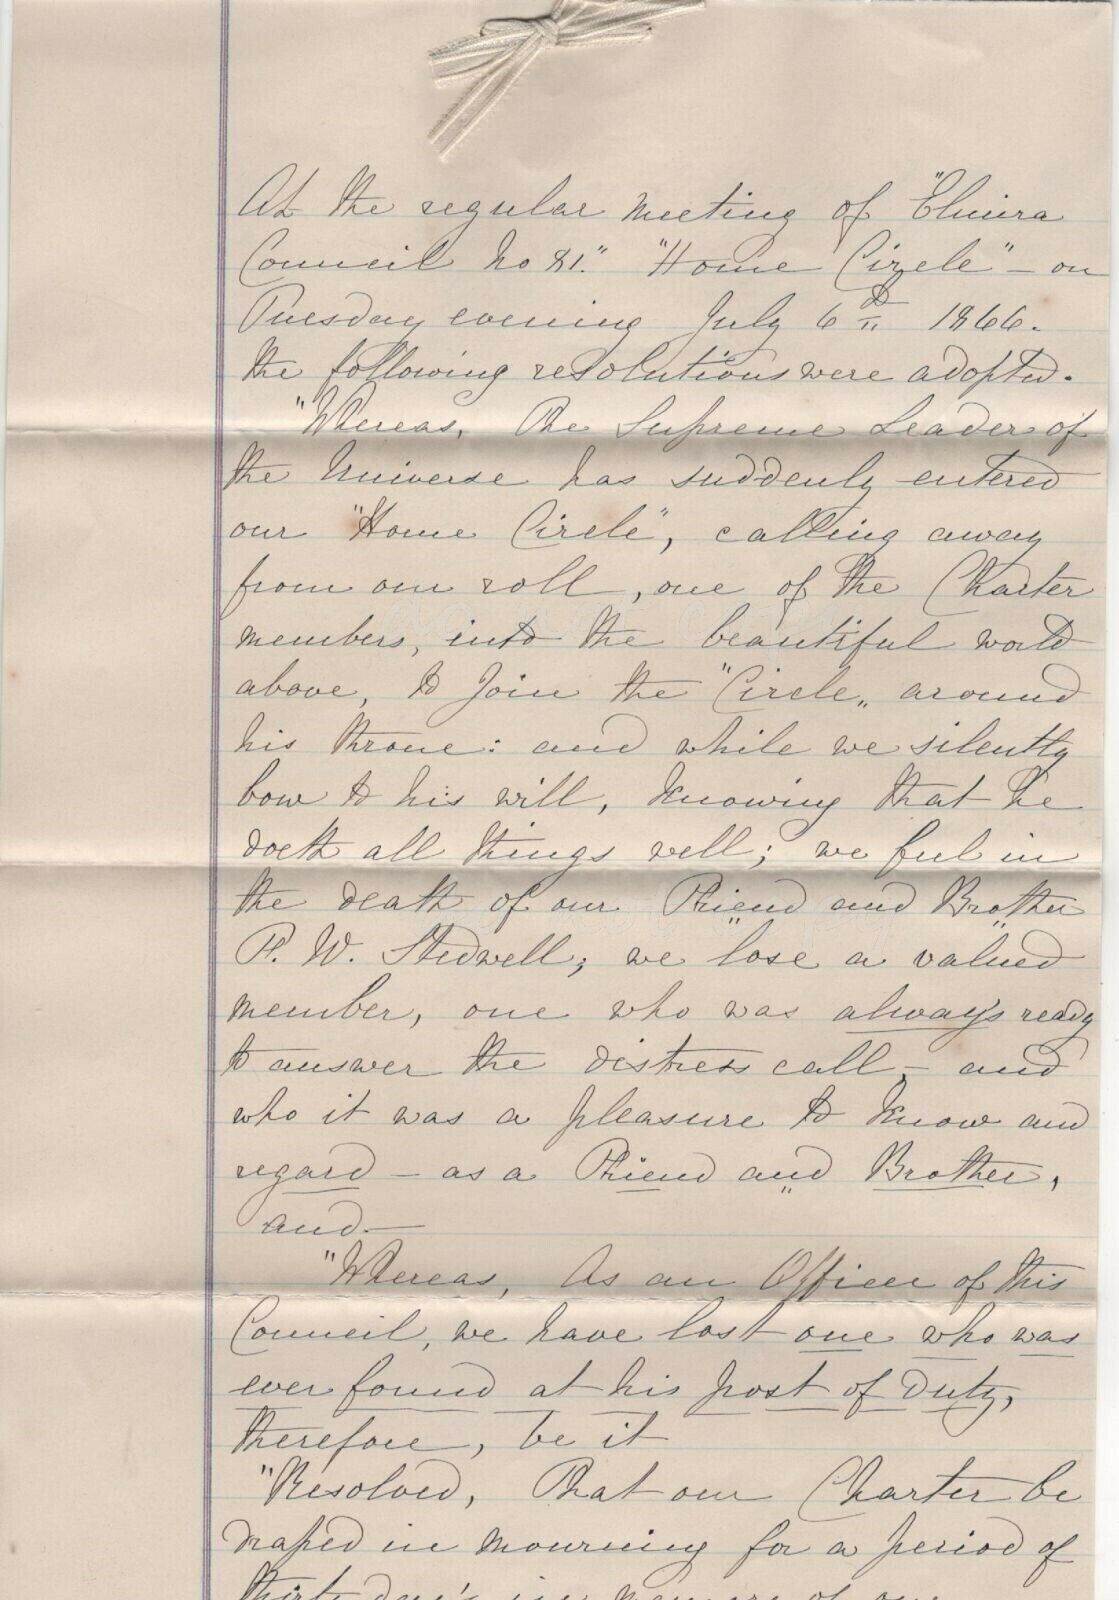 At the regular meeting of "Elmira
Council No 81." "Home Circle" – on
Tuesday evening July 6th 1866.
the following resolutions were adopted.
"Whereas, The Supreme Leader of
the Universe has suddenly entered
our "Home Circle", calling away
from our roll, one of the Charter
members, into the beautiful world
above, to join the "Circle" around
his throne: and while we silently
bow to his will, knowing that he
doeth all things well; we feel in
the death of our Friend and Brother
W. Stedwell; we "lose a valued
member, one who was always ready
to answer the distress call, – and
who it was a pleasure to know and
regard – as a Friend and Brother,
and –
"Whereas, As an Officer of this
Council, we have lost one who was
ever found at his post of Duty,
therefore, be it
"Resolved, That our Charter be
draped in mourning for a period of
thirty day's in memory of our